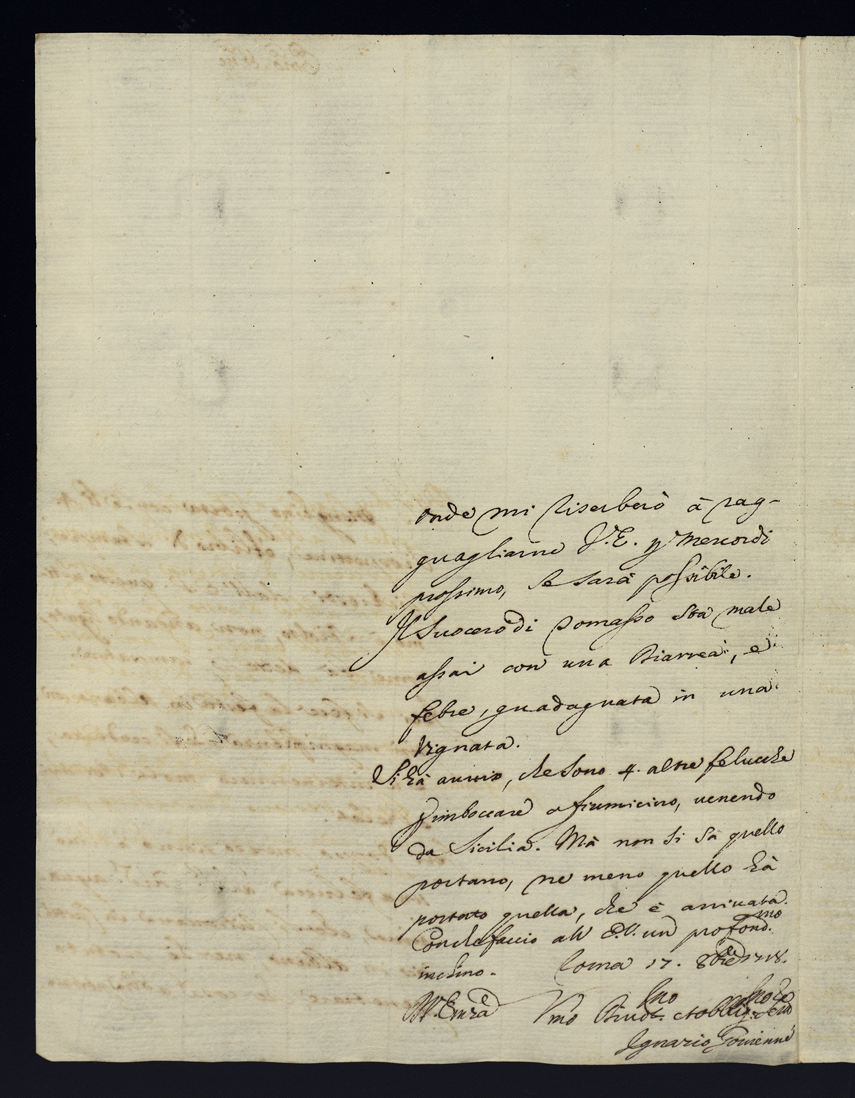 onde mi riserberò à rag-
guagliarne V.E. p Mercordi
prossimo, se sarà possibile.
Il Suocero di Tomasso stà male
assai con una Diarrea, e
febre, guadagnata in una
Vignata.
Si hà aviso, che sono 4. altre felucche
p imboccare a fiumicino, venendo
da Sicilia. Mà non si sà quello
portano, ne meno quello hà
portato quella, che è arrivata.
Con che faccio all' E.V. un profond.mo
inchino. Roma 17. 8bre 1718.
Umo Devot.mo et obblig.mo
Ignazio